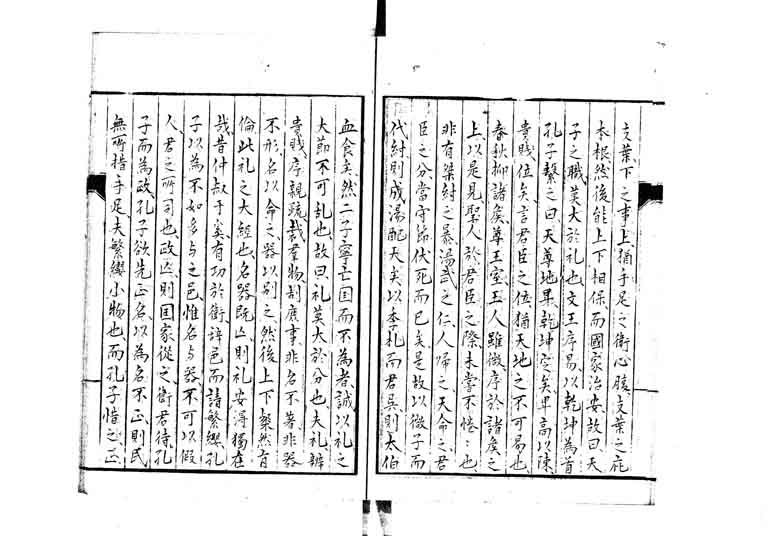 支葉下之事上猶手足之衛心腹支葉之庇
本根然後能上下相保而國家治安故曰天
子之職莫大於礼也文王序易以乾坤為首
孔子繫之曰天尊地卑乾坤定矣卑高以陳
貴賤位矣言君臣之位猶天地之不可易也
春秋抑諸矦尊王室王人雖微序於諸矦之
上以是見聖人於君臣之際未甞不惓〻也
非有桀紂之暴湯武之仁人歸之天命之君
臣之分當守節伏死而已矣是故以微子而
代紂則成湯配天矣以季札而君吳則太伯
血食矣然二子寧亡国而不為者誠以礼之
大節不可乱也故曰礼莫大於分也夫礼辨
貴賤序親疏裁羣物制庶事非名不著非器
不形名以命之器以別之然後上下粲然有
倫此礼之大經也名器既亡則礼安得獨在
哉昔仲叔于奚有功於衛辞邑而請繁纓孔
子以為不如多与之邑惟名与器不可以假
人君之所司也政亡則国家從之衛君待孔
子而為政孔子欲先正名以為名不正則民
無所措手足夫繁纓小物也而孔子惜之正